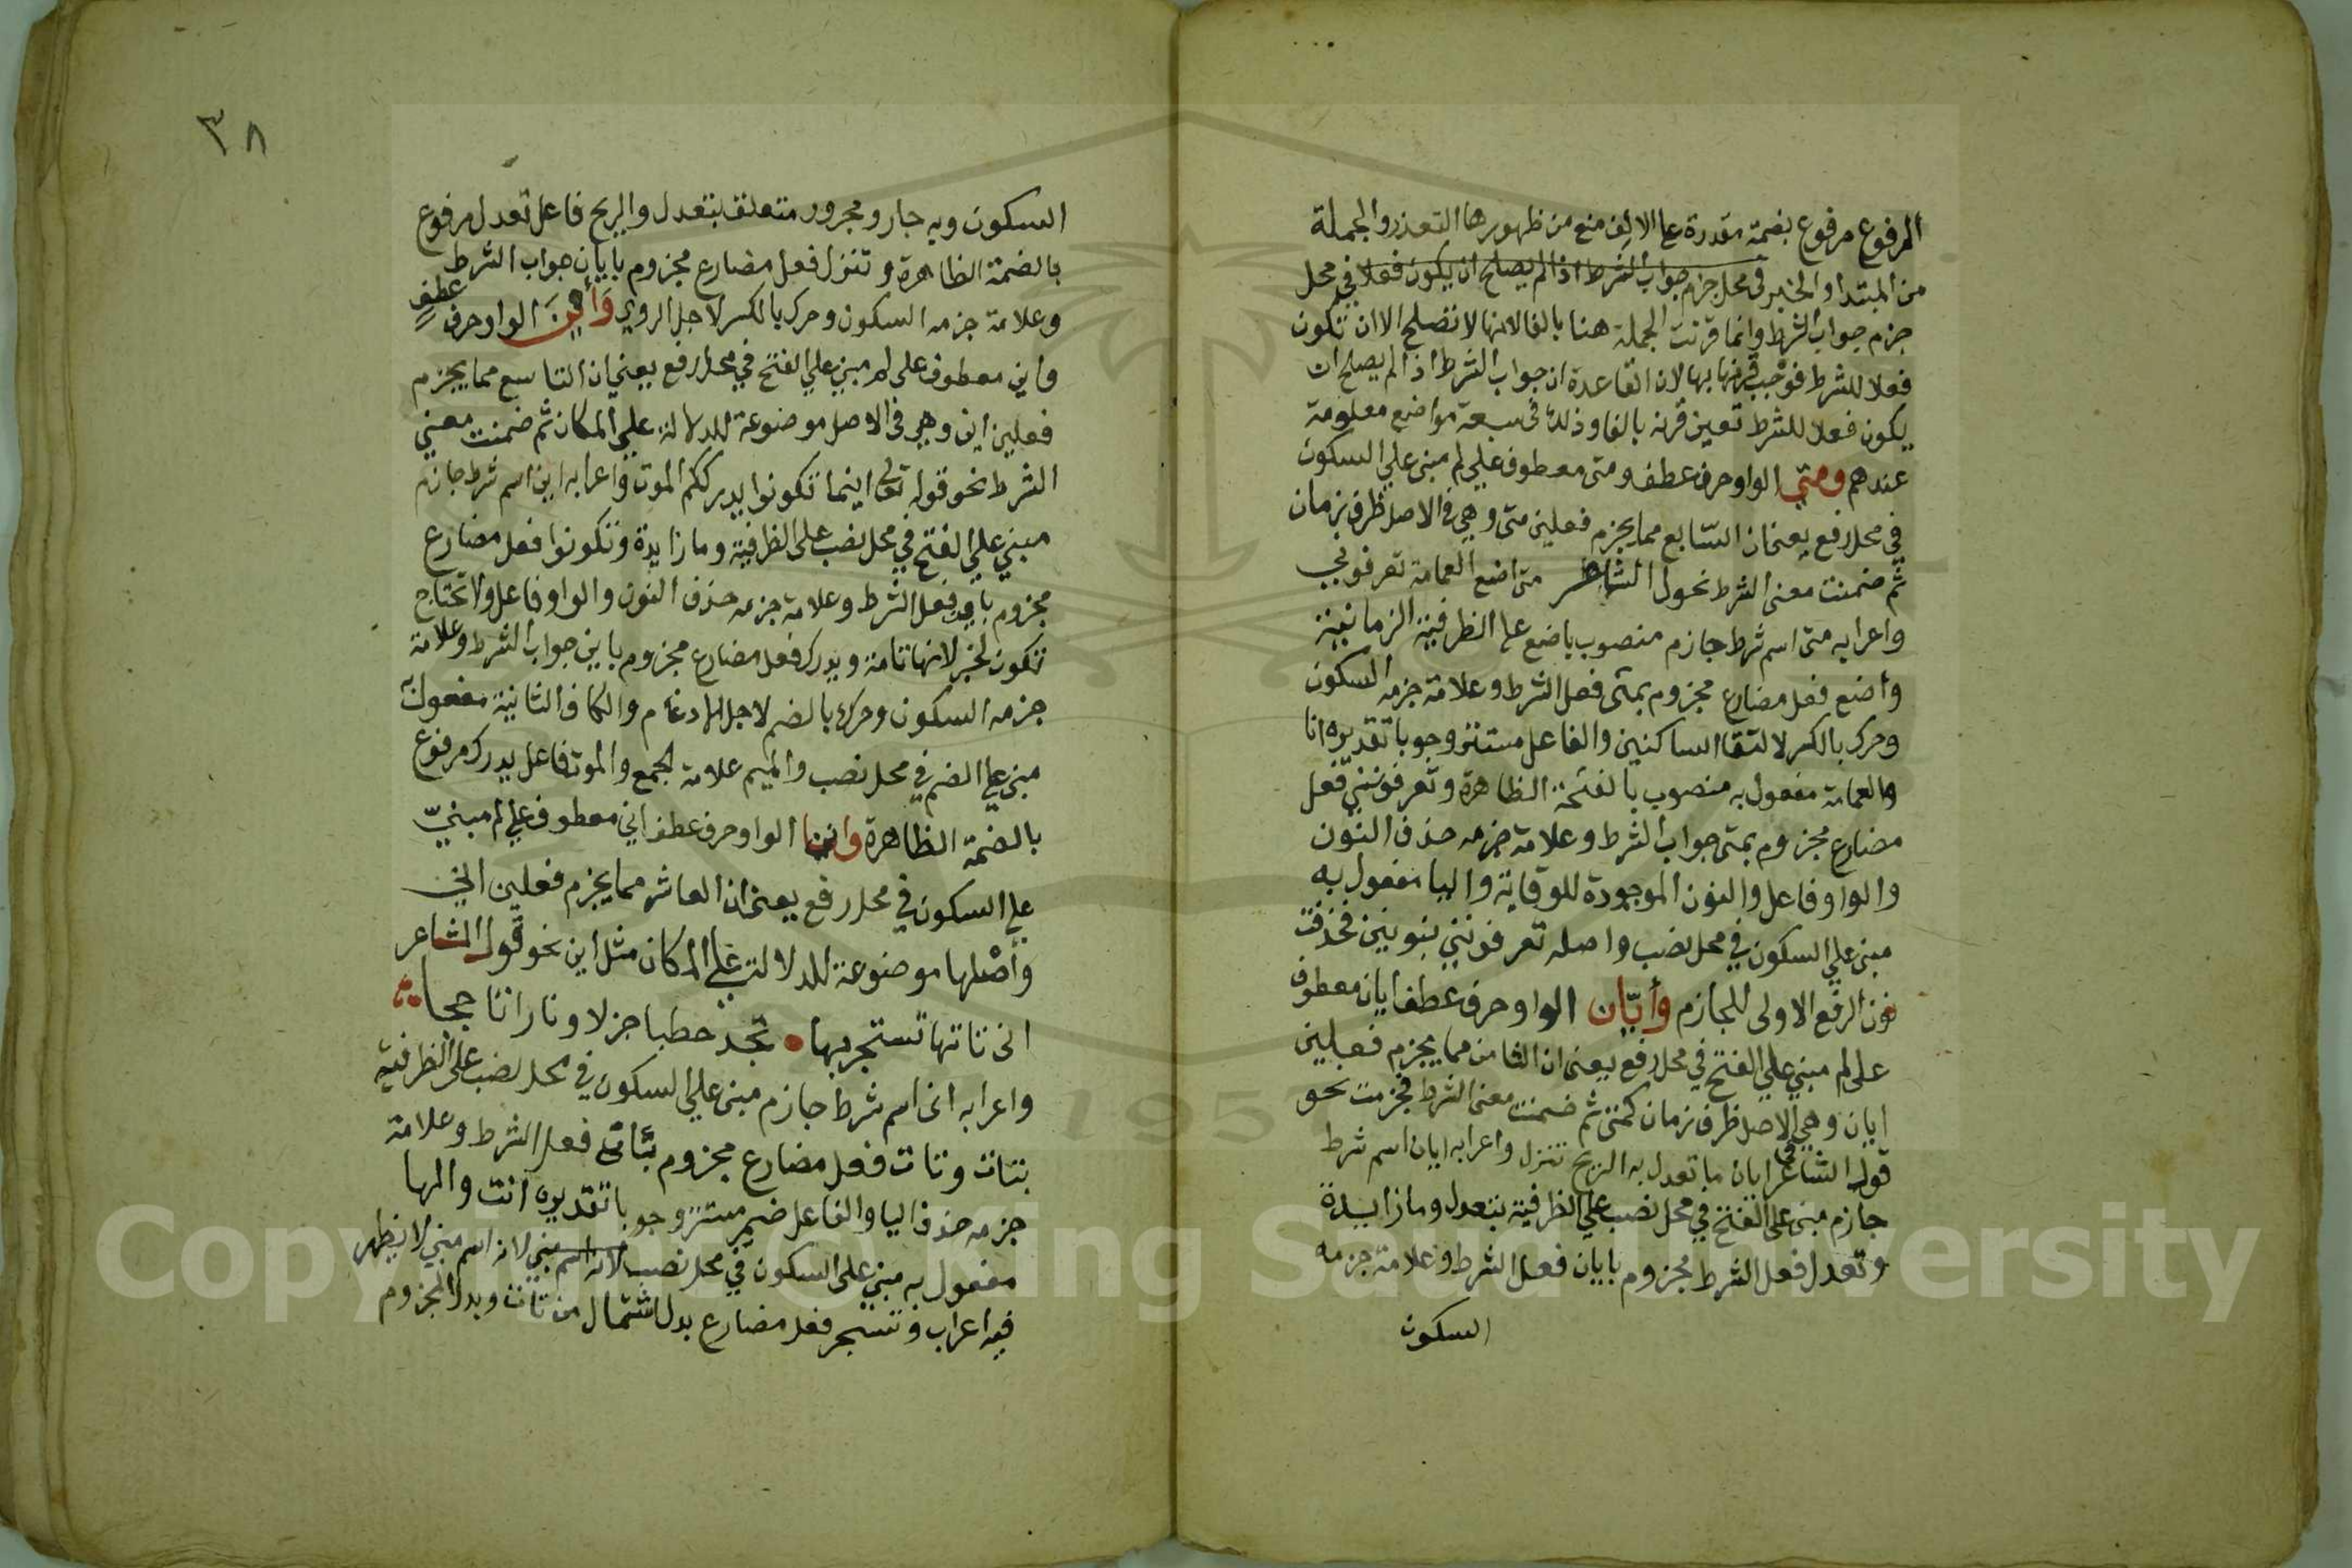 المرفوع مرفوع بضمة مقدرة علي الالف منع من ظهورها التعذر والجملة
من المبتدا والخبر في محل جزم جواب الشرط اذا لم يصلح ان يكون فعلا في محل
جزم جواب الشرط وانما قرنت الجملة هنا بالفا لانها لا تصلح الا ان تكون
فعلا للشرط فوجب قرنها بها لان القاعدة ان جواب الشرط اذا لم يصلح ان
يكون فعلا للشرط تعين قرنه بالفا وذلك في سبعة مواضع معلومة
عندهم ومتي الواو حرف عطف ومتى معطوف علي لم مبنى علي السكون
في محل رفع يعني ان السابع مما يجزم فعلين متى وهي في الاصل ظرف زمان
ثم ضمنت معنى الشرط نحو ل الشاعر متى اضع العمامة تعرفوني
واعرابه متى اسم شرط جازم منصوب باضع علي الظرفية الزمانية
وأضع فعل مضارع مجزوم بمتى فعل الشرط وعلامة جزمه السكون
وحرك بالكسر لالتقا الساكنين والفاعل مستتر وجوبا تقديره انا
والعمامة مفعول به منصوب بالفتحة الظاهرة وتعرفونني فعل
مضارع مجزوم بمتى جواب الشرط وعلامة جزمه حذف النون
والواو فاعل والنون الموجودة للوقاية واليا مفعول به
مبنى علي السكون في محل نصب واصله تعرفونني بنونين فحذفت
نون الرفع الاولى للجازم وأيّان الواو حرف عطف ايان معطوف
على لم مبني علي الفتح في محل رفع يعنى ان الثامن مما يجزم فعلين
ايان وهي في الاصل ظرف زمان كمتى ثم ضمنت معنى الشرط فجزمت نحو
قول الشاعر ايان ما تعدل به الريح تنزل واعرابه ايان اسم شرط
جازم مبنى على الفتح في محل نصب علي الظرفية بتعدل وما زايدة
وتعدل فعل الشرط مجزوم بايان فعل الشرط وعلامة جزمه
السكون
٣٨
السكون وبه جار ومجرور متعلق بتعدل والريح فاعل تعدل مرفوع
بالضمة الظاهرة وتنزل فعل مضارع مجزوم بايان جواب الشرط
وعلامة جزمه السكون وحرك بالكسر لاجل الروي وَأَينَ الواو حرف عطف
واين معطوف على لم مبني علي الفتح في محل رفع يعني ان التاسع مما يجزم
فعلين اين وهي في الاصل موضوعة للدلالة علي المكان ثم ضمنت معني
الشرط نحو قوله تعالى اينما تكونوا يدرككم الموت واعرابه اين اسم شرط جازم
مبني علي الفتح في محل نصب على الظرفية وما زايدة وتكونوا فعل مضارع
مجزوم باين فعل الشرط وعلامة جزمه حذف النون والواو فاعل ولا تحتاج
تكون لخبر لانها تامة ويدرك فعل مضارع مجزوم باين جواب الشرط وعلامة
جزمه السكون وحرك بالضم لاجل الادغام والكاف الثانية مفعول به
مبنى علي الضم في محل نصب والميم علامة الجمع والموت فاعل يدرك مرفوع
بالضمة الظاهرة وانى الواو حرف عطف اني معطوف علي لم مبنيّ
علي السكون في محل رفع يعنى ان العاشر مما يجزم فعلين اني
وأصلها موضوعة للدلالة علي المكان مثل اين نحو قول الشاعر
انى تاتها تستجر بها تجد حطبا جزلا ونارا تاججا
واعرابه انى اسم شرط جازم مبنى علي السكون في محل نصب على الظرفية
بتات وتات فعل مضارع مجزوم بأنى فعل الشرط وعلامة
جزمه حذف اليا والفاعل ضمير مستتر وجوبا تقديره انت والها
مفعول به مبني على السكون في محل نصب لانه اسم مبني لانه اسم مبني لا يظهر
فيه اعراب وتستجر فعل مضارع بدل اشتمال من تات وبدل المجزوم
Copyright © King Saud University
195